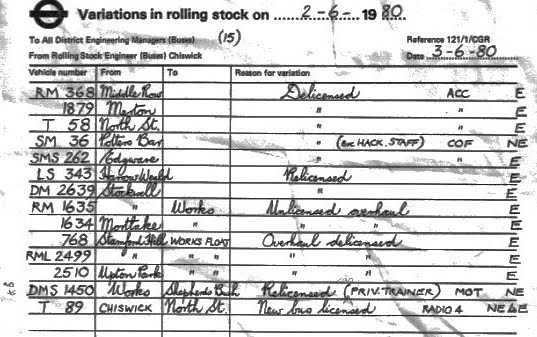 Variations in rolling stock on 2-6- 1980
To All District Engineering Managers (Buses) (15) Reference 121/1/CGR
From Rolling Stock Engineer (Buses) Chiswick Date 3-6-80
Vehicle number From To Reason for variation
RM 368 Middle Row Delicensed ACC E
1879 Merton " " E
T 58 North St. " " E
SM 36 Potters Bar " (ex HACK, STAFF) COF NE
SMS 262 Edgware " E
LS 343 Harrow Weald Relicensed E
DM 2639 Stockwell " E
RM 1635 " Works Unlicensed overhaul E
1634 Mortlake " " " E
768 Stamford Hill WORKS FLOAT Overhaul delicensed E
RML 2499 " " " " " E
2510 Upton Park " " " " E
DMS 1450 Works Shepherds Bush Relicensed (PRIV. TRAINER) MOT NE
T 89 CHISWICK North St. New bus licensed RADIO 4 NE&E